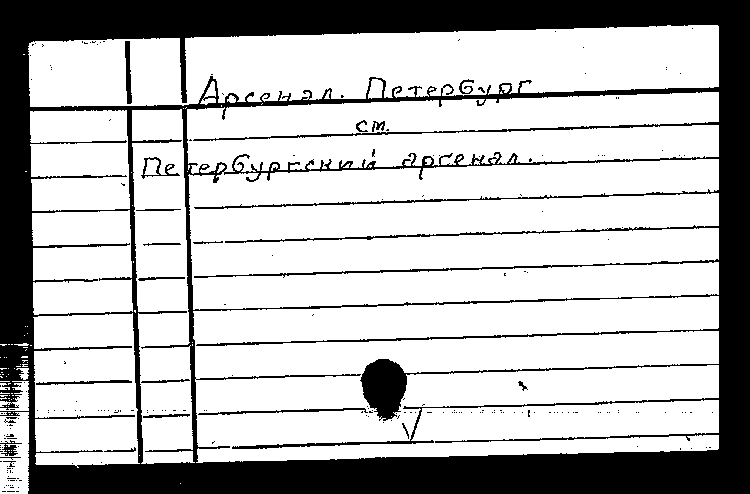 Арсенал. Петербург
см.
Петербургский арсенал.